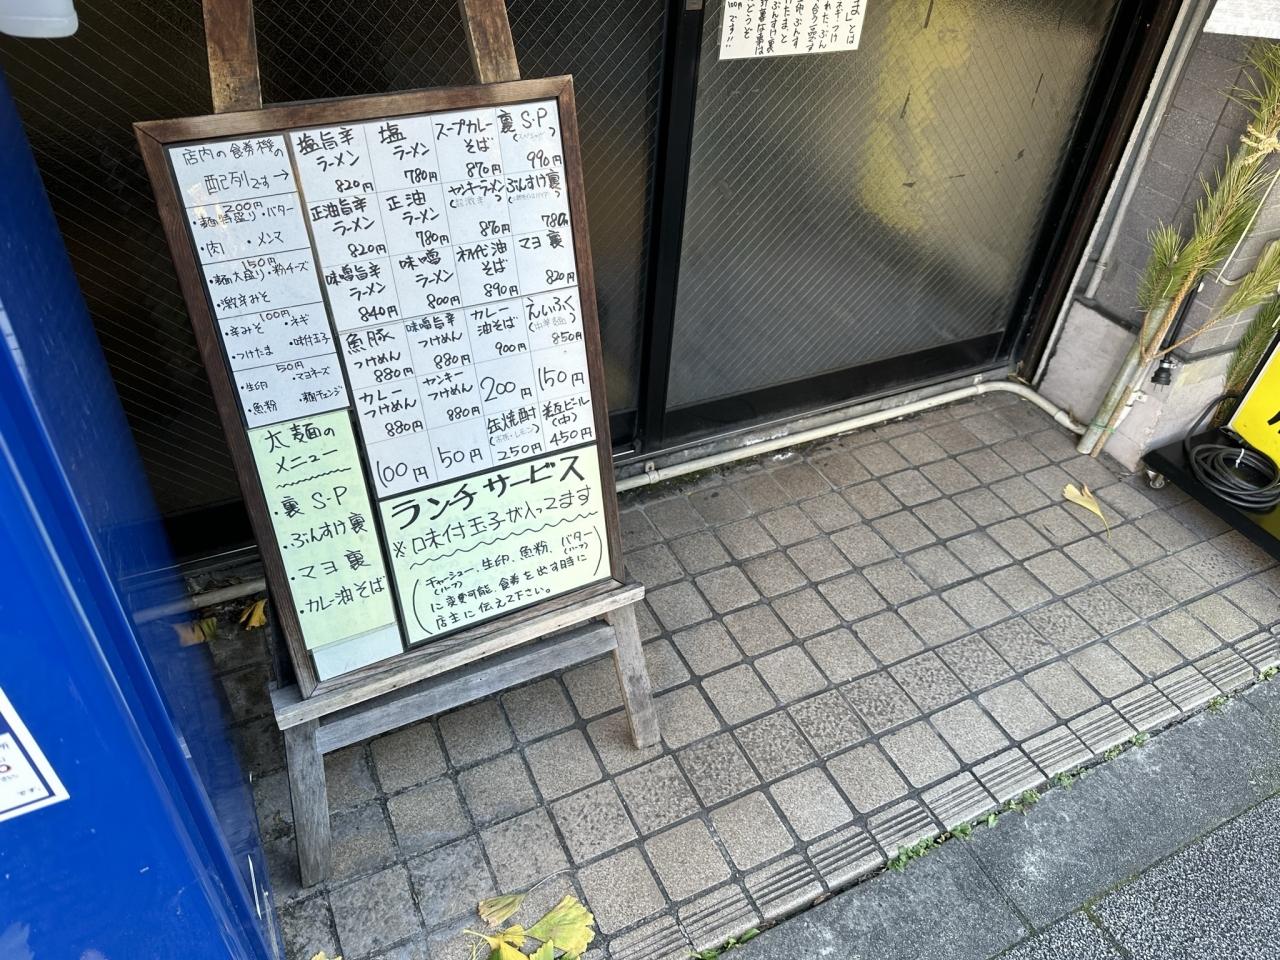 店内の食券機の
配列です→
200円
・麺特盛り・バター
・肉 ・メンマ
150円
・麺大盛り・粉チーズ
・激辛みそ
100円
・辛みそ ・ネギ
・つけたま ・味付玉子
50円
・生卵 ・マヨネーズ
・魚粉 ・麺チェンジ
太麺の
メニュー
・裏 S・P
・ぶんすけ裏
・マヨ裏
・カレー油そば
塩旨辛
ラーメン
820円
塩
ラーメン
780円
スープカレー
そば
870円
裏 S・P
(スペシャル)
990円
正油旨辛
ラーメン
820円
正油
ラーメン
780円
ヤンキーラーメン
870円
ぶんすけ裏
780円
味噌旨辛
ラーメン
840円
味噌
ラーメン
800円
初代油
そば
890円
マヨ裏
820円
魚豚
つけめん
880円
味噌旨辛
つけめん
880円
カレー
油そば
900円
えいふく
(中華麺)
850円
カレー
つけめん
880円
ヤンキー
つけめん
880円
200円
150円
100円
50円
缶焼酎
250円
瓶ビール
(中)
450円
ランチサービス
※味付玉子が入ってます
(チャーシュー、生卵、魚粉、バター
(ハーフ) (ハーフ)
に変更可能、食券を出す時に
店主に伝えて下さい。)